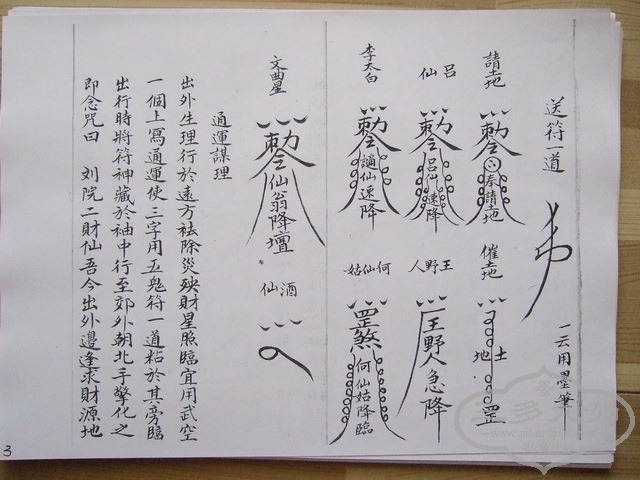 送符一道
一云用墨筆
請土地
勅令 奉請土地
催土地
土地 罡
呂仙
勅令 呂仙速降
王野人
王野人急降
李太白
勅令 謫仙速降
何仙姑
罡煞 何仙姑降臨
文曲星
勅令 仙翁降壇
酒仙
通運謀理
出外生理行於遠方祛除災殃財星照臨宜用武空
一個上寫通運使三字用五鬼符一道粘於其旁臨
出行時將符神藏於袖中行至郊外朝北手擎化之
即念咒曰 刘院二財仙吾今出外邊逢求財源地
3